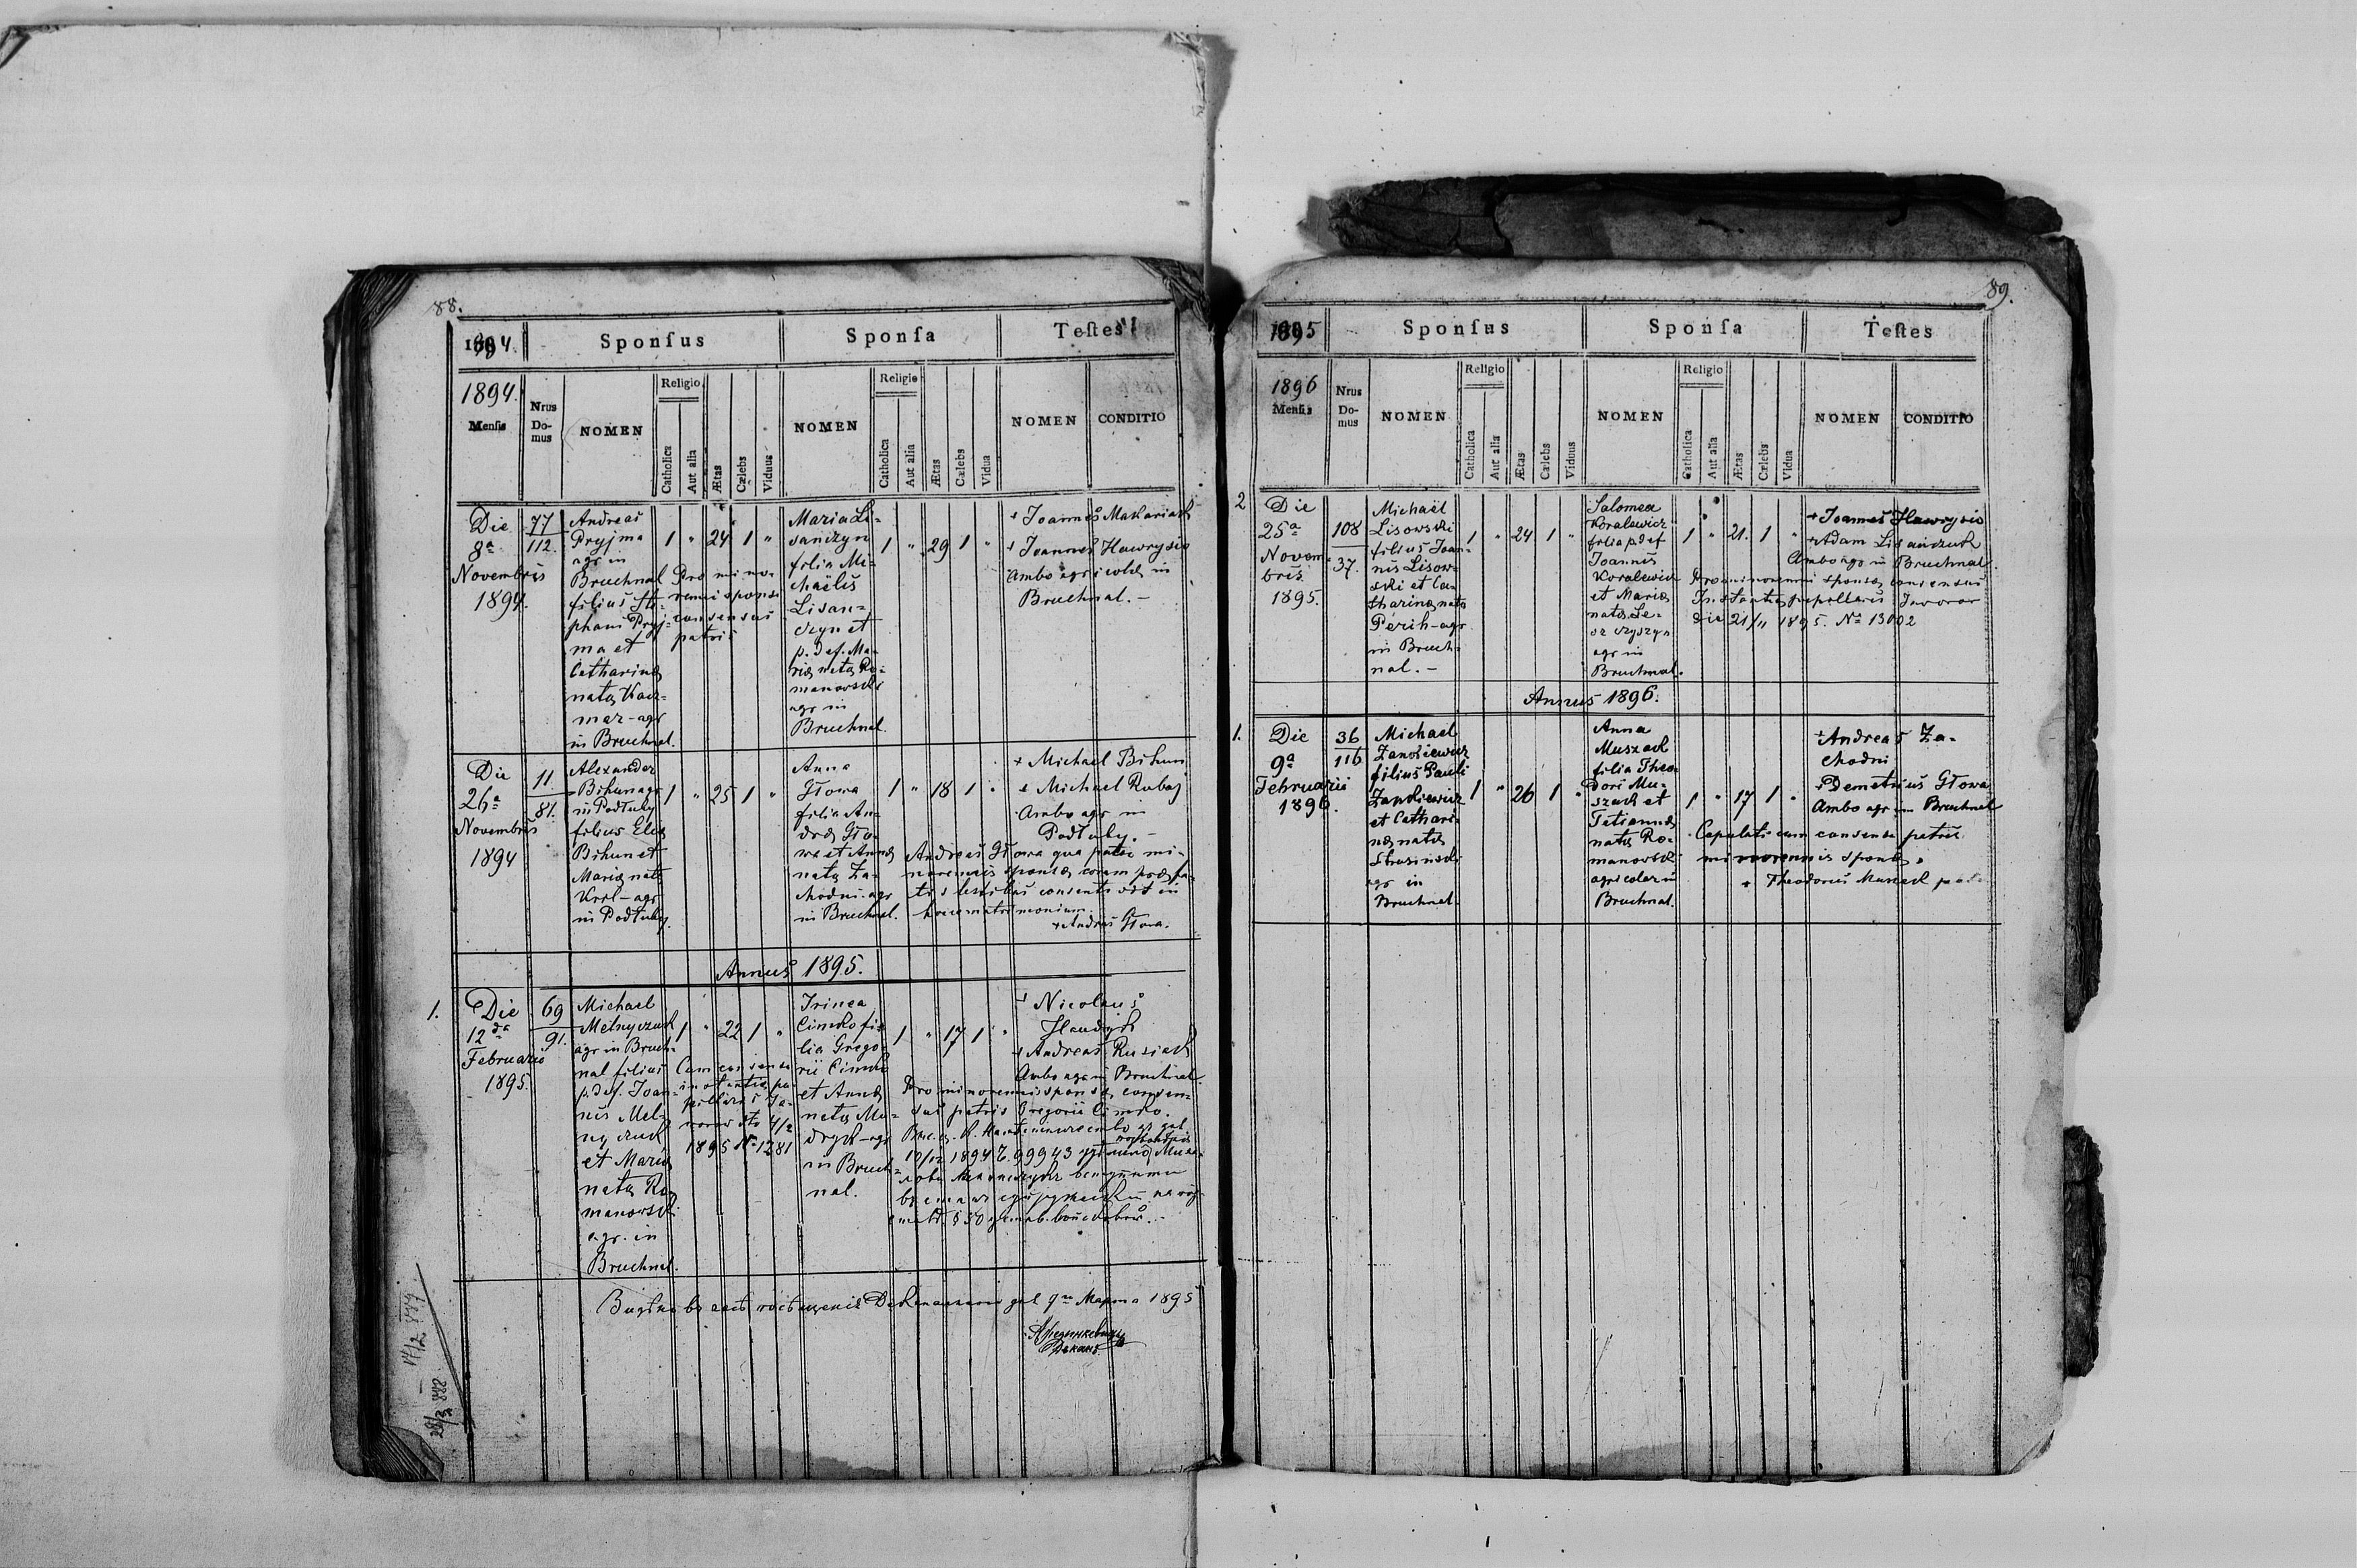 88.
1894.
Sponſus
Sponſa
Teſtes
1894.
Menſis
Nrus Do-mus
NOMEN
Religio
Catholica
Aut alia
Ætas
Cælebs
Viduus
NOMEN
Religio
Catholica
Aut alia
Ætas
Cælebs
Vidua
NOMEN
CONDITIO
Die
8ª
Novembris
1894.
77
112.
Andreas
Pryjma
agr in
Bruchnal
filius Ste-
phani Pryj-
ma et
Catharinæ
natæ Kacz-
mar - agr
in Bruchnal.
1 " 24 1 "
Pro mino-
renni sponso
consensus
patris
Maria Li-
sanczyn
filia Mi-
chaëlis
Lisan-
czyn et
p. def. Ma-
riæ natæ Ro-
manowski
agr in
Bruchnal.
1 " 29 1 "
+ Joannes Makariach
+ Joannes Hawrysio
Ambo agricolæ in
Bruchnal. -
Die
26ª
Novembris
1894
11.
81.
Alexander
Bihun agr
in Podłuby
filius Eliæ
Bihun et
Mariæ natæ
Krol - agr
in Podłuby.
1 " 25 1 "
Anna
Głowa
filia An-
dreæ Gło-
wa et Annæ
natæ Za-
chodni - agr
in Bruchnal.
1 " 18 1 "
+ Michael Bihun
+ Michael Rubaj
Ambo agr in
Podłuby. -
Andreas Głowa qua pater mi-
norennis sponsæ coram præfa-
tis testibus consentit in
hoc matrimonium.
+ Andreas Głowa.
Annus 1895.
1.
Die
12da
Februarii
1895.
69
91.
Michael
Melnyczuch
agr in Bruch-
nal filius
p. def. Joan-
nis Mel-
nyczuch
et Mariæ
natæ Ro-
manowski
agr. in
Bruchnal.
1 " 22 1 "
Cum consensu
instantiæ pu-
pillaris Ja-
worow dto 4/2
1895 Nº 1281
Irinea
Cimko fi-
lia Grego-
rii Cimko
et Annæ
natæ Mu-
dryk - agr
in Bruch-
nal.
1 " 17 1 "
+ Nicolaus
Haudyk
+ Andreas Rusiach
Ambo agr in Bruchnal.
Pro minorennis sponsæ consen-
sus patris Gregorii Cimko.
1894
99943
§ 50
1895
88.
89.
1895
Sponſus
Sponſa
Teſtes
1896
Menſis
Nrus Do-mus
NOMEN
Religio
Catholica
Aut alia
Ætas
Cælebs
Viduus
NOMEN
Religio
Catholica
Aut alia
Ætas
Cælebs
Vidua
NOMEN
CONDITIO
2
Die
25ª
Novem-
bris
1895.
108
37.
Michaël
Lisowski
filius Joan-
nis Lisow-
ski et Ca-
tharinæ natæ
Perih - agr
in Bruch-
nal. -
1 " 24 1 "
Salomea
Koralewicz
filia p def
Joannis
Koralewicz
et Mariæ
natæ Le-
szczyszyn
agr in
Bruchnal.
1 " 21. 1 "
+ Joannes Hawrysio
+ Adam Lisanczuk
Ambo agr in Bruchnal.
Pro minorenni sponsa consensus
Instantiæ pupillaris Javorov
die 21/11 1895. Nº 13002
Annus 1896.
1.
Die
9ª
Februarii
1896.
36
116
Michael
Zankiewicz
filius Pauli
Zankiewicz
et Cathari-
næ natæ
Strusinski
agr in
Bruchnal.
1 " 26 1 "
Anna
Muszach
filia Theo-
dori Mu-
szach et
Tatiannæ
natæ Ro-
manowski
agricolar in
Bruchnal.
1 " 17 1 "
+ Andreas Za-
chodni
+ Demetrius Głowa
Ambo agr in Bruchnal
Copulati cum consensu patris
minorennis sponsæ.
+ Theodorus Muszach